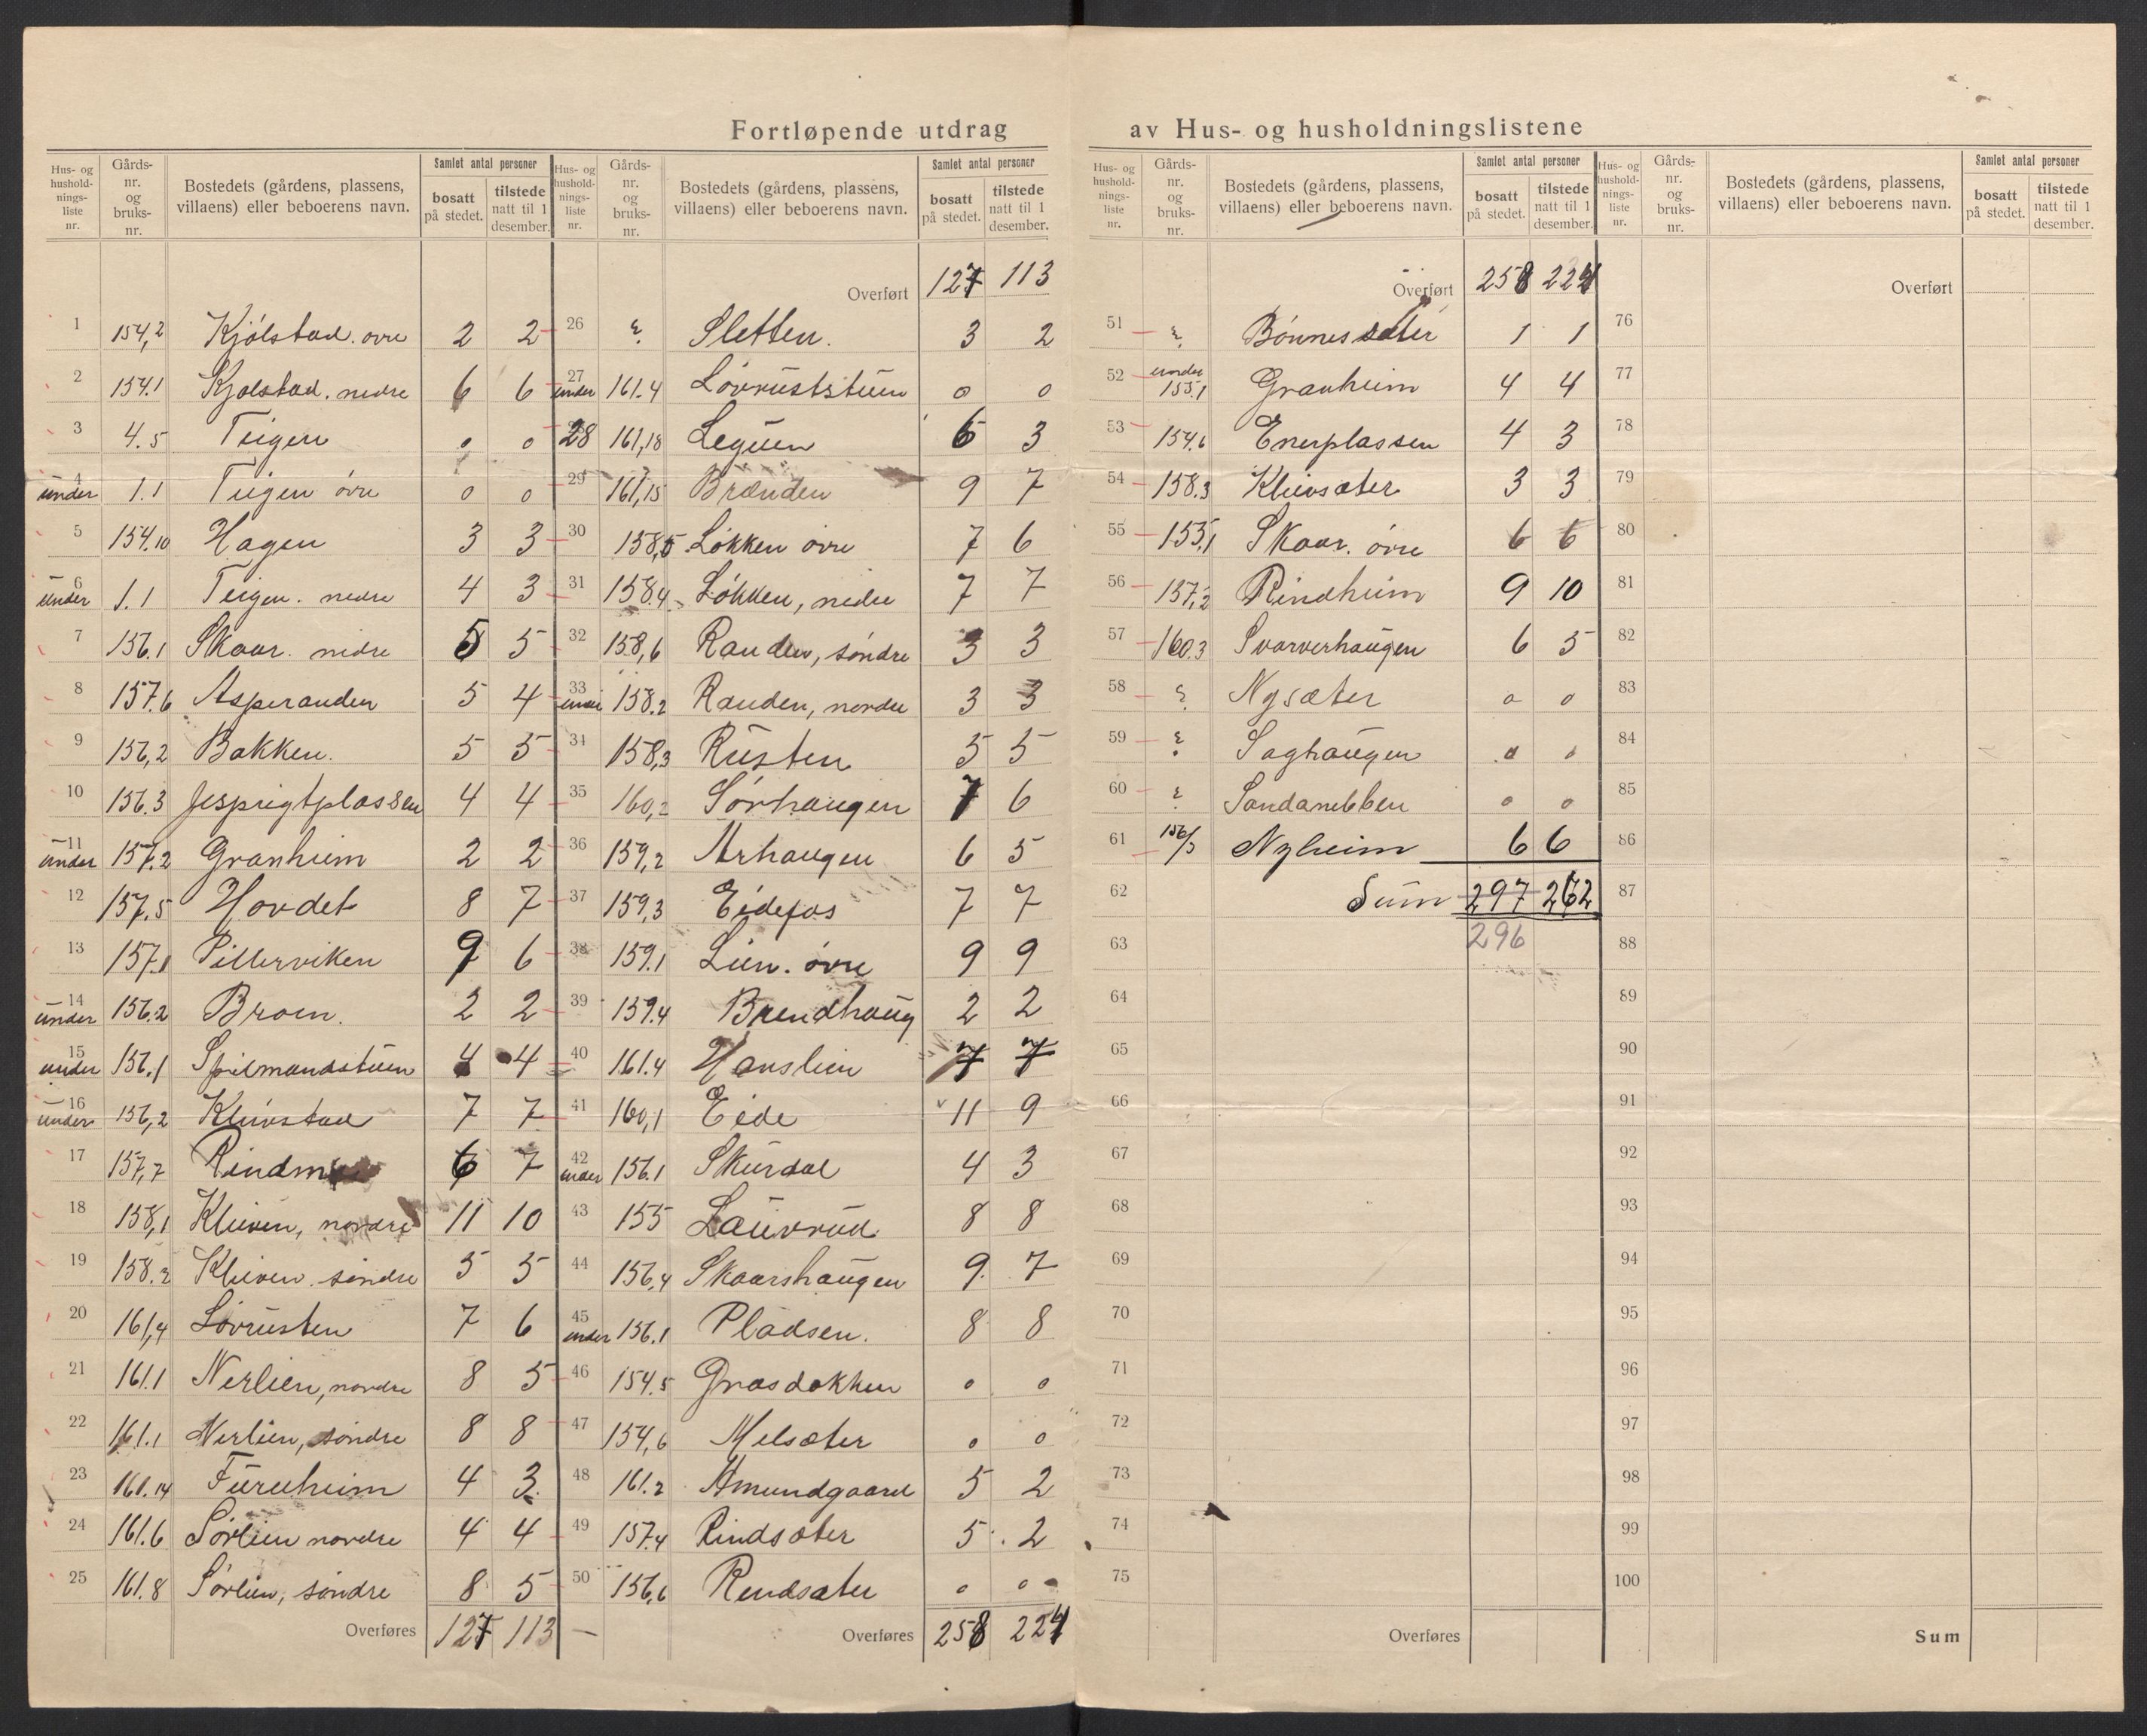 Fortløpende utdrag av Hus- og husholdningslistene
Hus- og husholdningsliste nr. Gårds-nr. og bruks-nr. Bostedets (gårdens, plassens, villaens) eller beboerens navn. Samlet antal personer bosatt på stedet. tilstede natt til 1 desember.
1 154,2 Kjølstad. øvre 2 2
2 154.1 Kjølstad. nedre 6 6
3 4.5 Teigen 0 0
4 under 1.1 Teigen øvre 0 0
5 154.10 Hagen 3 3
6 under 1.1 Teigen. nedre 4 3
7 156.1 Skaar. nedre 5 5
8 157.6 Asperanden 5 4
9 156,2 Bakken. 5 5
10 156.3 Jesprigtplassen 4 4
11 under 157.2 Granheim 2 2
12 157.5 Hovdet 8 7
13 157.1 Pillerviken 9 6
14 under 156.2 Broen. 2 2
15 under 156.1 Spilmandstuen 4 4
16 under 156,2 Klevstad 7 7
17 157,7 6 7
18 158,1 Kleiven, nordre 11 10
19 158.2 Kleiven. søndre 5 5
20 161,4 Løvrusten 7 6
21 161.1 Nerlien, nordre 8 5
22 161.1 Nerlien, søndre 8 8
23 161.14 Furuheim 4 3.
24 161.6 Sørlien nordre 4 4
25 161.8 Sørlien, søndre 8 5
Overføres 127 113
Hus- og husholdningsliste nr. Gårds-nr. og bruks-nr. Bostedets (gårdens, plassens, villaens) eller beboerens navn. Samlet antal personer bosatt på stedet. tilstede natt til 1 desember.
Overført 127 113
26 ? Sletten. 3 2
27 under 161.4 Løvruststuen 0 0
28 161,18 Leguen 6 3
29 161,15 Brænden 9 7
30 158,5 Løkken øvre 7 6
31 158.4 Løkken, nedre 7 7
32 158,6 Randen, søndre 3 3
33 under 158.2 Randen, nordre 3 3
34 158,3 Rusten 5 5
35 160,2 Sørhaugen 7 6
36 159,2 Arhaugen 6 5
37 159,3 Eidefos 7 7
38 159.1 Lien. øvre 9 9
39 159.4 Brendhaug 2 2
40 161.4 Hanslien 7 7
41 160,1 Eide 11 9
42 under 156.1 Skurdal 4 3
43 155 Lauvrud 8 8
44 156,4 Skaarshaugen 9. 7
45 under 156.1 Pladsen. 8 8
46 154.5 Græsdokken 0 0
47 154,6 Melsæter 0 0
48 161.2 Amundgaard 5 2
49 157.4 Rindsæter 5 2
50 156,6 Rendsæter 0 0
Overføres 258 224
Hus- og husholdningsliste nr. Gårds-nr. og bruks-nr. Bostedets (gårdens, plassens, villaens) eller beboerens navn. Samlet antal personer bosatt på stedet. tilstede natt til 1 desember.
Overført 258 224
51 ? Bønnessæter 1 1
52 under 155.1 Granheim 4 4
53 154.6 Enerplassen 4 3
54 158.3 Klevsæter 3 3
55 155,1 Skaar. øvre 6 6
56 157,2 Rindheim 9 10
57 160.3 Svarverhaugen 6 5
58 ? Nysæter 0 0
59 ? Saghaugen 0 0
60 ? Sandanebben 0 0
61 156/5 Nyheim 6 6
62 Sum 297 262
63 296
64
65
66
67
68
69
70
71
72
73
74
75
Overføres
Hus- og husholdningsliste nr. Gårds-nr. og bruks-nr. Bostedets (gårdens, plassens, villaens) eller beboerens navn. Samlet antal personer bosatt på stedet. tilstede natt til 1 desember.
Overført
76
77
78
79
80
81
82
83
84
85
86
87
88
89
90
91
92
93
94
95
96
97
98
99
100
Sum